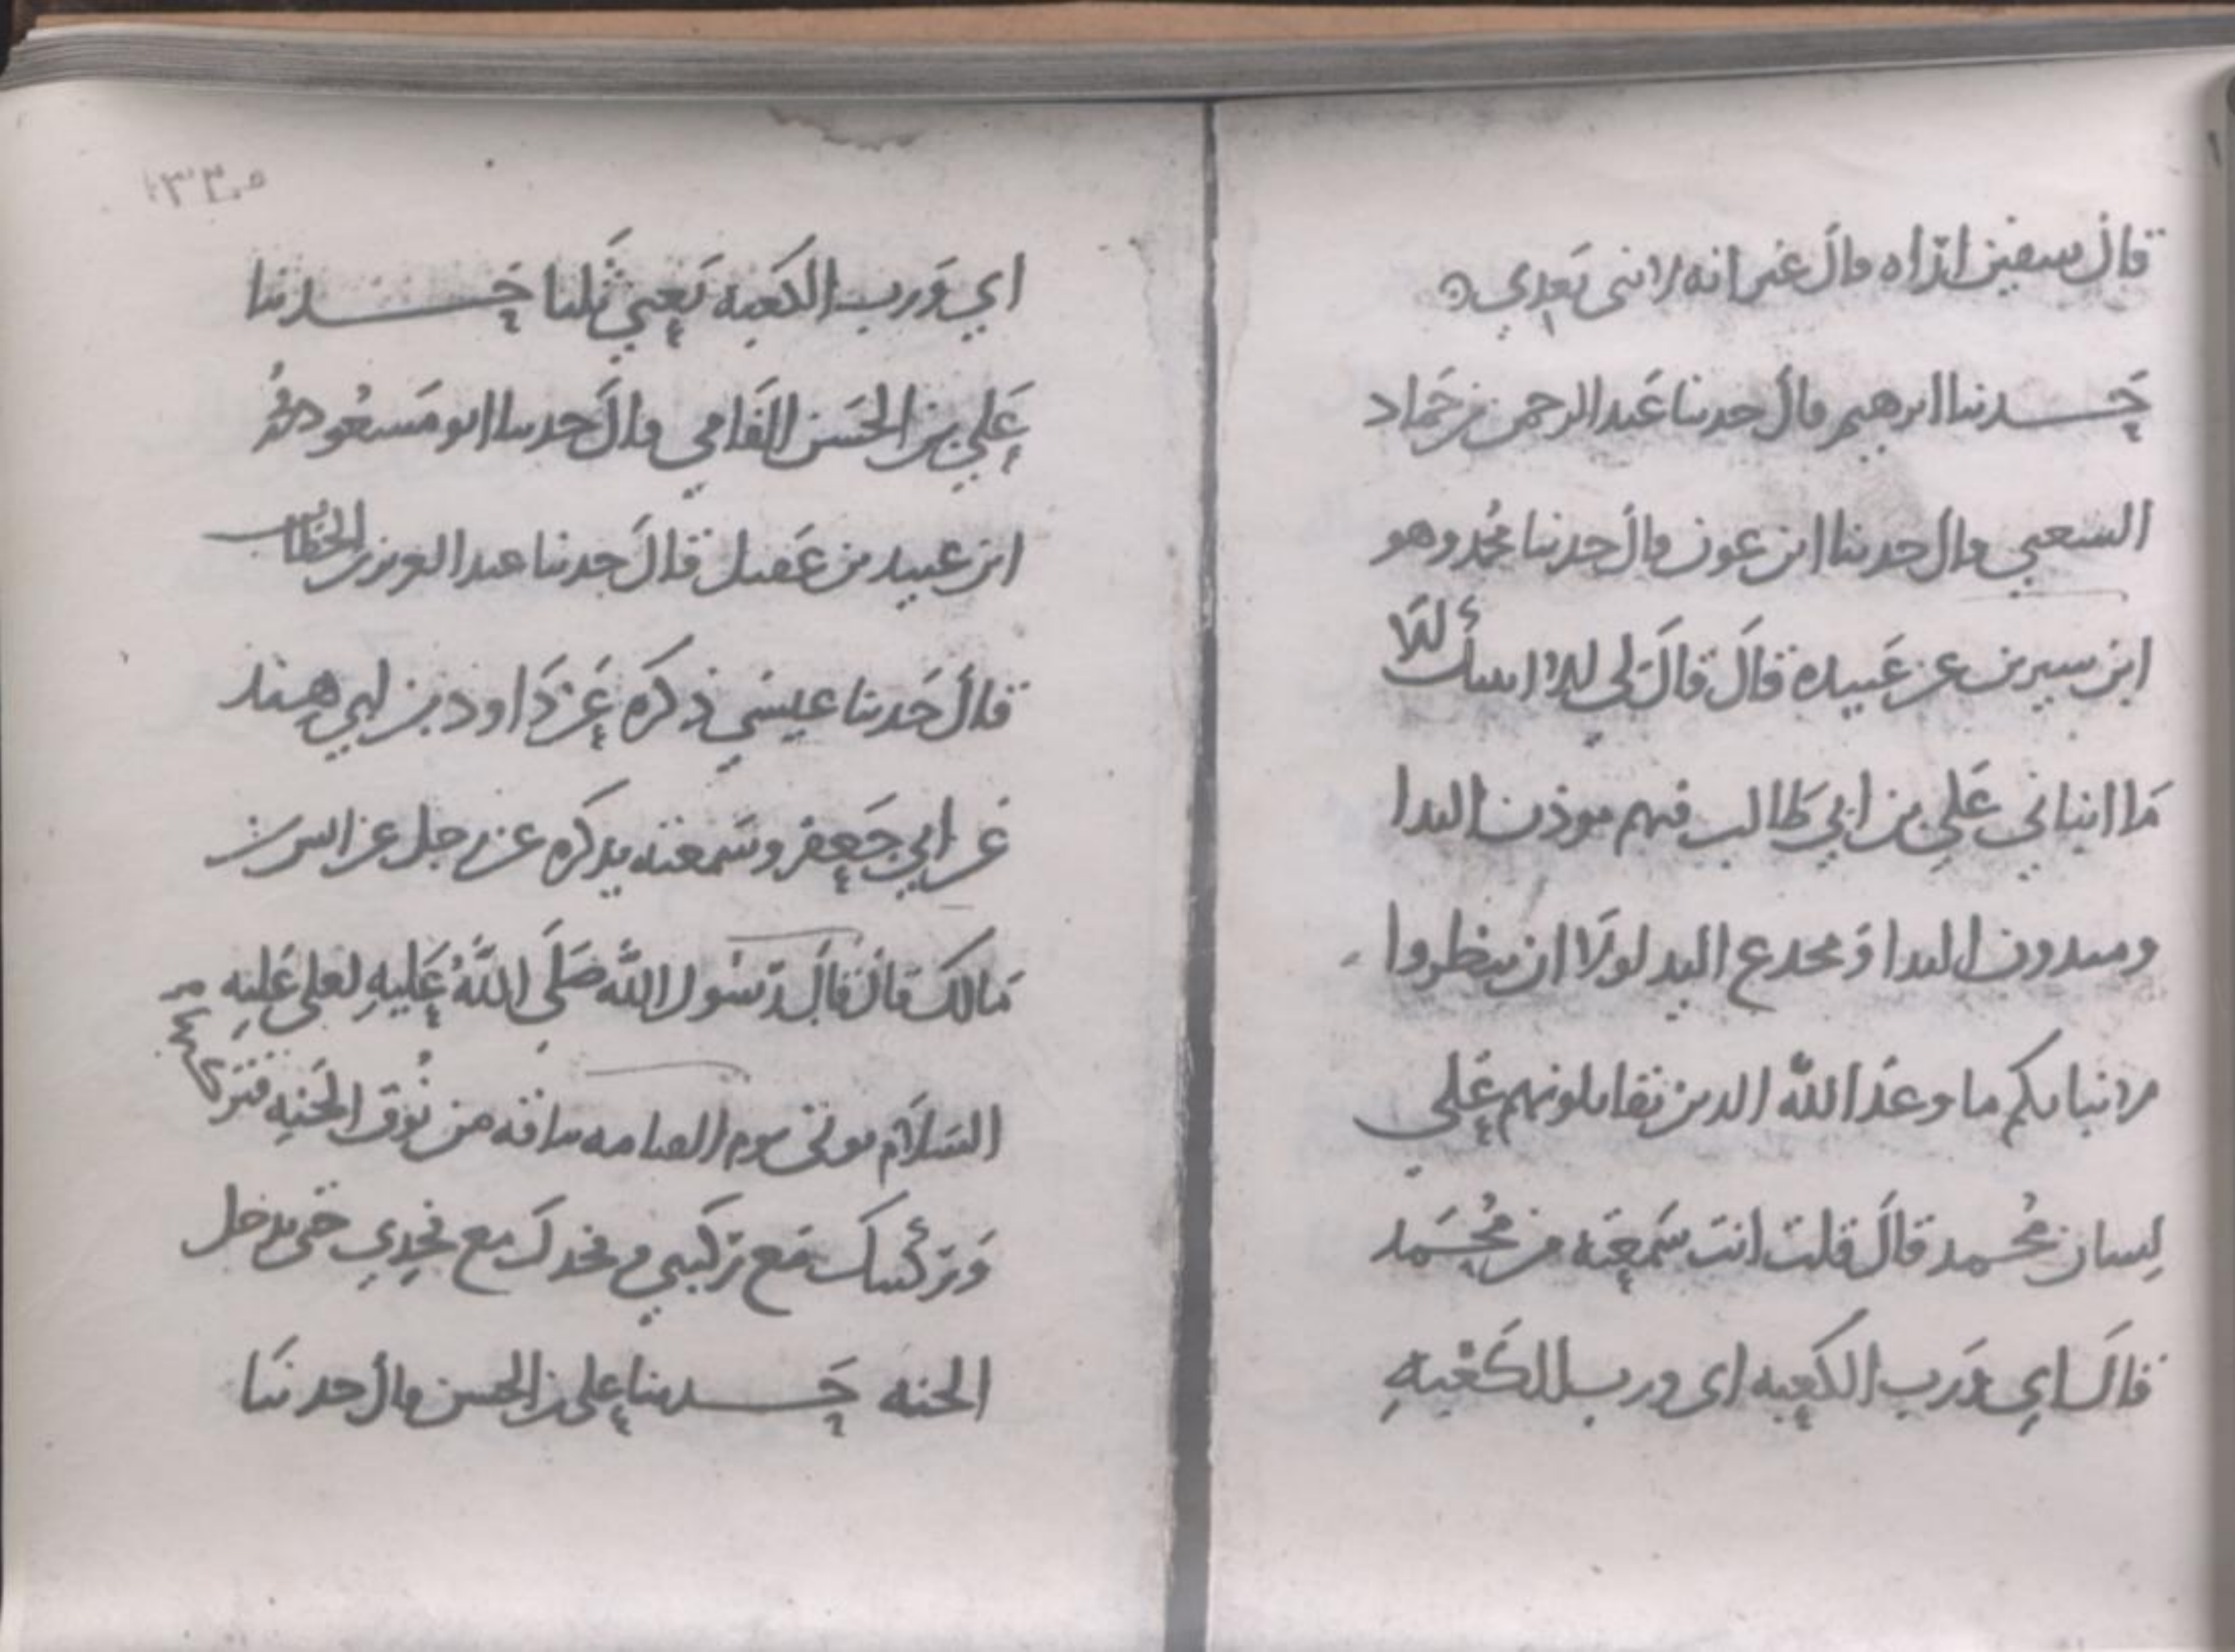 قال سفين اراه قال غير انه لا نبي بعدي ه
حدثنا ابرهيم قال حدثنا عبد الرحمن بن حماد
الشعبي قال حدثنا ابن عون قال حدثنا محمد وهو
ابن سيرين عن عبيدة قال قال لي لا اسألك الا
ما انباني علي بن ابي طالب فيهم موذن اليد ا
ومثدون اليد او مخدع اليد لولا ان تبطروا
لانباتكم ما وعد الله الذين يقاتلونهم على
لسان محمد قال قلت انت سمعته من محمد
قال اي ورب الكعبه اي ورب الكعبه
١٣٣٠٥
اي ورب الكعبه يعني ثلثا حدثنا
علي بن الحسن القامي قال حدثنا ابو مسعود محمد
ابن عبيد بن عقيل قال حدثنا عبد العزيز بن الخطاب
قال حدثنا عيسى ذكره عن داود بن ابي هند
عن ابي جعفر وسمعته يذكره عن رجل عن انس بن
مالك قال قال رسول الله صلى الله عليه لعلي عليه
السلام يوتى يوم القيامه بناقه من نوق الجنه فتركبها
وركبتك مع ركبتي وفخدك مع فخدي حتى تدخل
الجنه حدثنا علي بن الحسن قال حدثنا